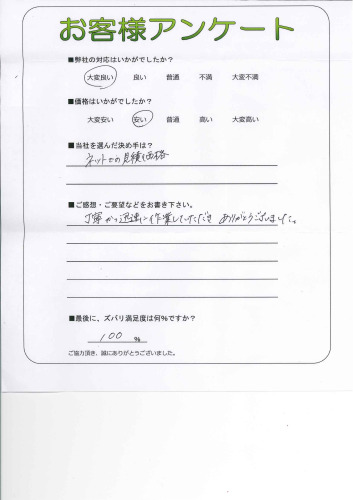 お客様アンケート
■弊社の対応はいかがでしたか?
大変良い 良い 普通 不満 大変不満
■価格はいかがでしたか?
大変安い 安い 普通 高い 大変高い
■当社を選んだ決め手は?
ネットでの見積価格
■ご感想・ご要望などをお書き下さい。
丁寧かつ迅速に作業していただき ありがとうございました。
■最後に、ズバリ満足度は何%ですか?
100 %
ご協力頂き、誠にありがとうございました。